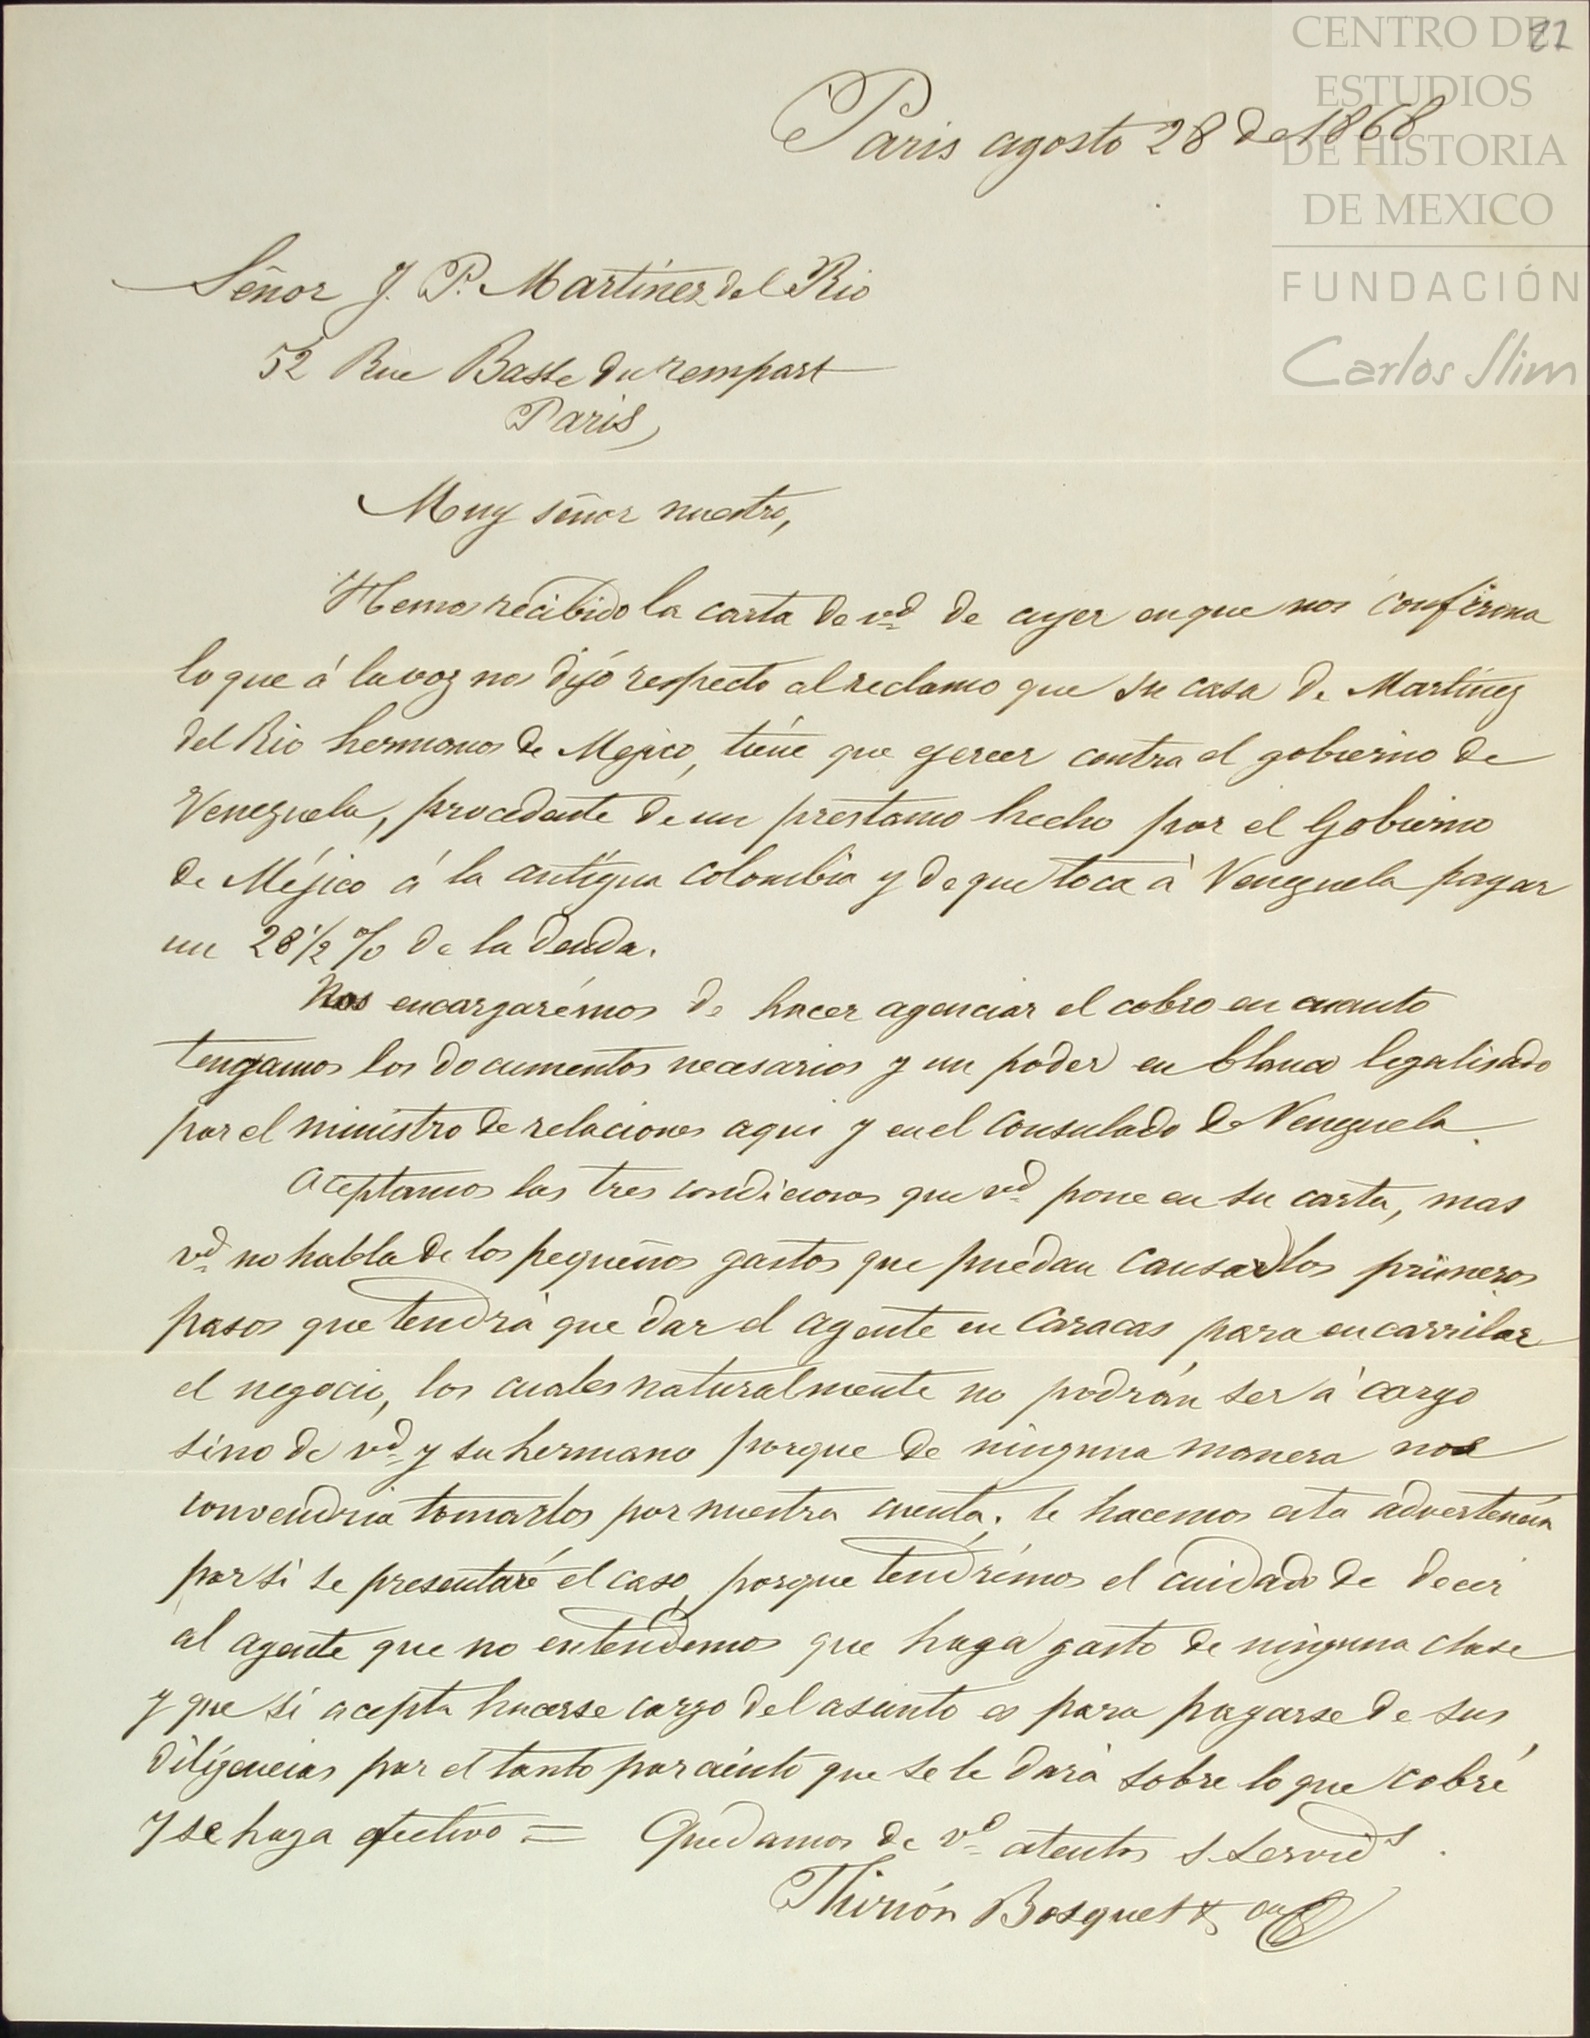 22
CENTRO DE
ESTUDIOS
DE HISTORIA
DE MEXICO
FUNDACIÓN
Carlos Slim
Paris agosto 28 de 1868
Señor J. P. Martinez del Rio
52 Rue Basse du rempart
Paris,
Muy señor nuestro,
Hemos recibido la carta de vd de ayer en que nos confirma
lo que á la voz nos dijó respecto al reclamo que su casa de Martinez
del Rio hermanos de Mejico, tiene que ejercer contra el gobierno de
Venezuela, procedente de un prestamo hecho por el Gobierno
de Méjico á la antigua colombia y de que toca à Venezuela pagar
un 28 1/2 % de la deuda.
Nos encargarémos de hacer agenciar el cobro en cuanto
tengamos los documentos necesarios y un poder en blanco legalisado
por el ministro de relaciones aqui y en el consulado de Venezuela.
Aceptamos las tres condiciones que vd pone en su carta, mas
vd no habla de los pequeños gastos que puedan causar los primeros
pasos que tendrà que dar el agente en Caracas para encarrilar
el negocio, los cuales naturalmente no podrán ser à cargo
sino de vd y su hermano porque de ninguna manera nos
convendria tomarlos por nuestra cuenta; le hacemos esta advertencia
por si se presentaré el caso, porque tendrémos el cuidado de decir
al agente que no entendemos que haga gasto de ninguna clase
y que si acepta hacerse cargo del asunto es para pagarse de sus
diligencias por el tanto por ciento que se le darà sobre lo que cobré
y se haga efectivo = Quedamos de vd atentos s servids.
Thirión Bosquet &